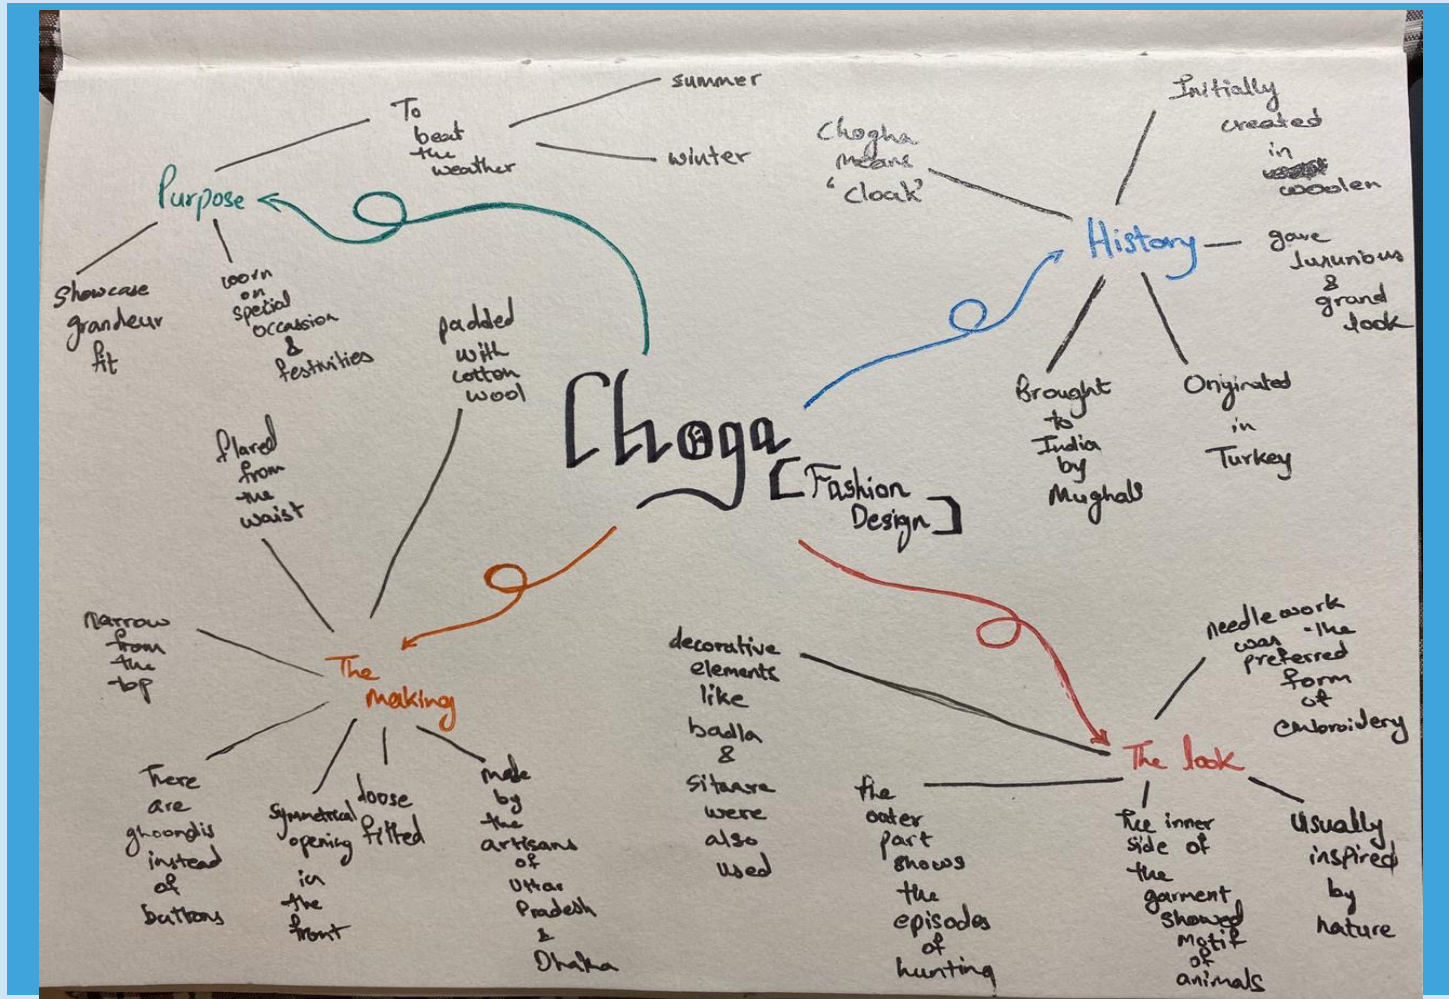 Choga
[Fashion
Design]
Purpose
To
beat
the
weather
summer
winter
Showcase
grandeur
fit
worn
on
special
occassion
&
festivities
History
Chogha
means
'cloak'
Initially
created
in
woolen
gave
luxurious
&
grand
look
Brought
to
India
by
Mughals
Originated
in
Turkey
The
making
padded
with
cotton
wool
flared
from
the
waist
narrow
from
the
top
There
are
ghoondis
instead
of
buttons
symmetrical
opening
in
the
front
loose
fitted
Made
by
the
artisans
of
Uttar
Pradesh
&
Dhaka
The look
decorative
elements
like
badla
&
sitaare
were
also
used
the
outer
part
shows
the
episodes
of
hunting
The inner
side of
the
garment
showed
motif
of
animals
Usually
inspired
by
nature
needle work
was the
preferred
form
of
embroidery